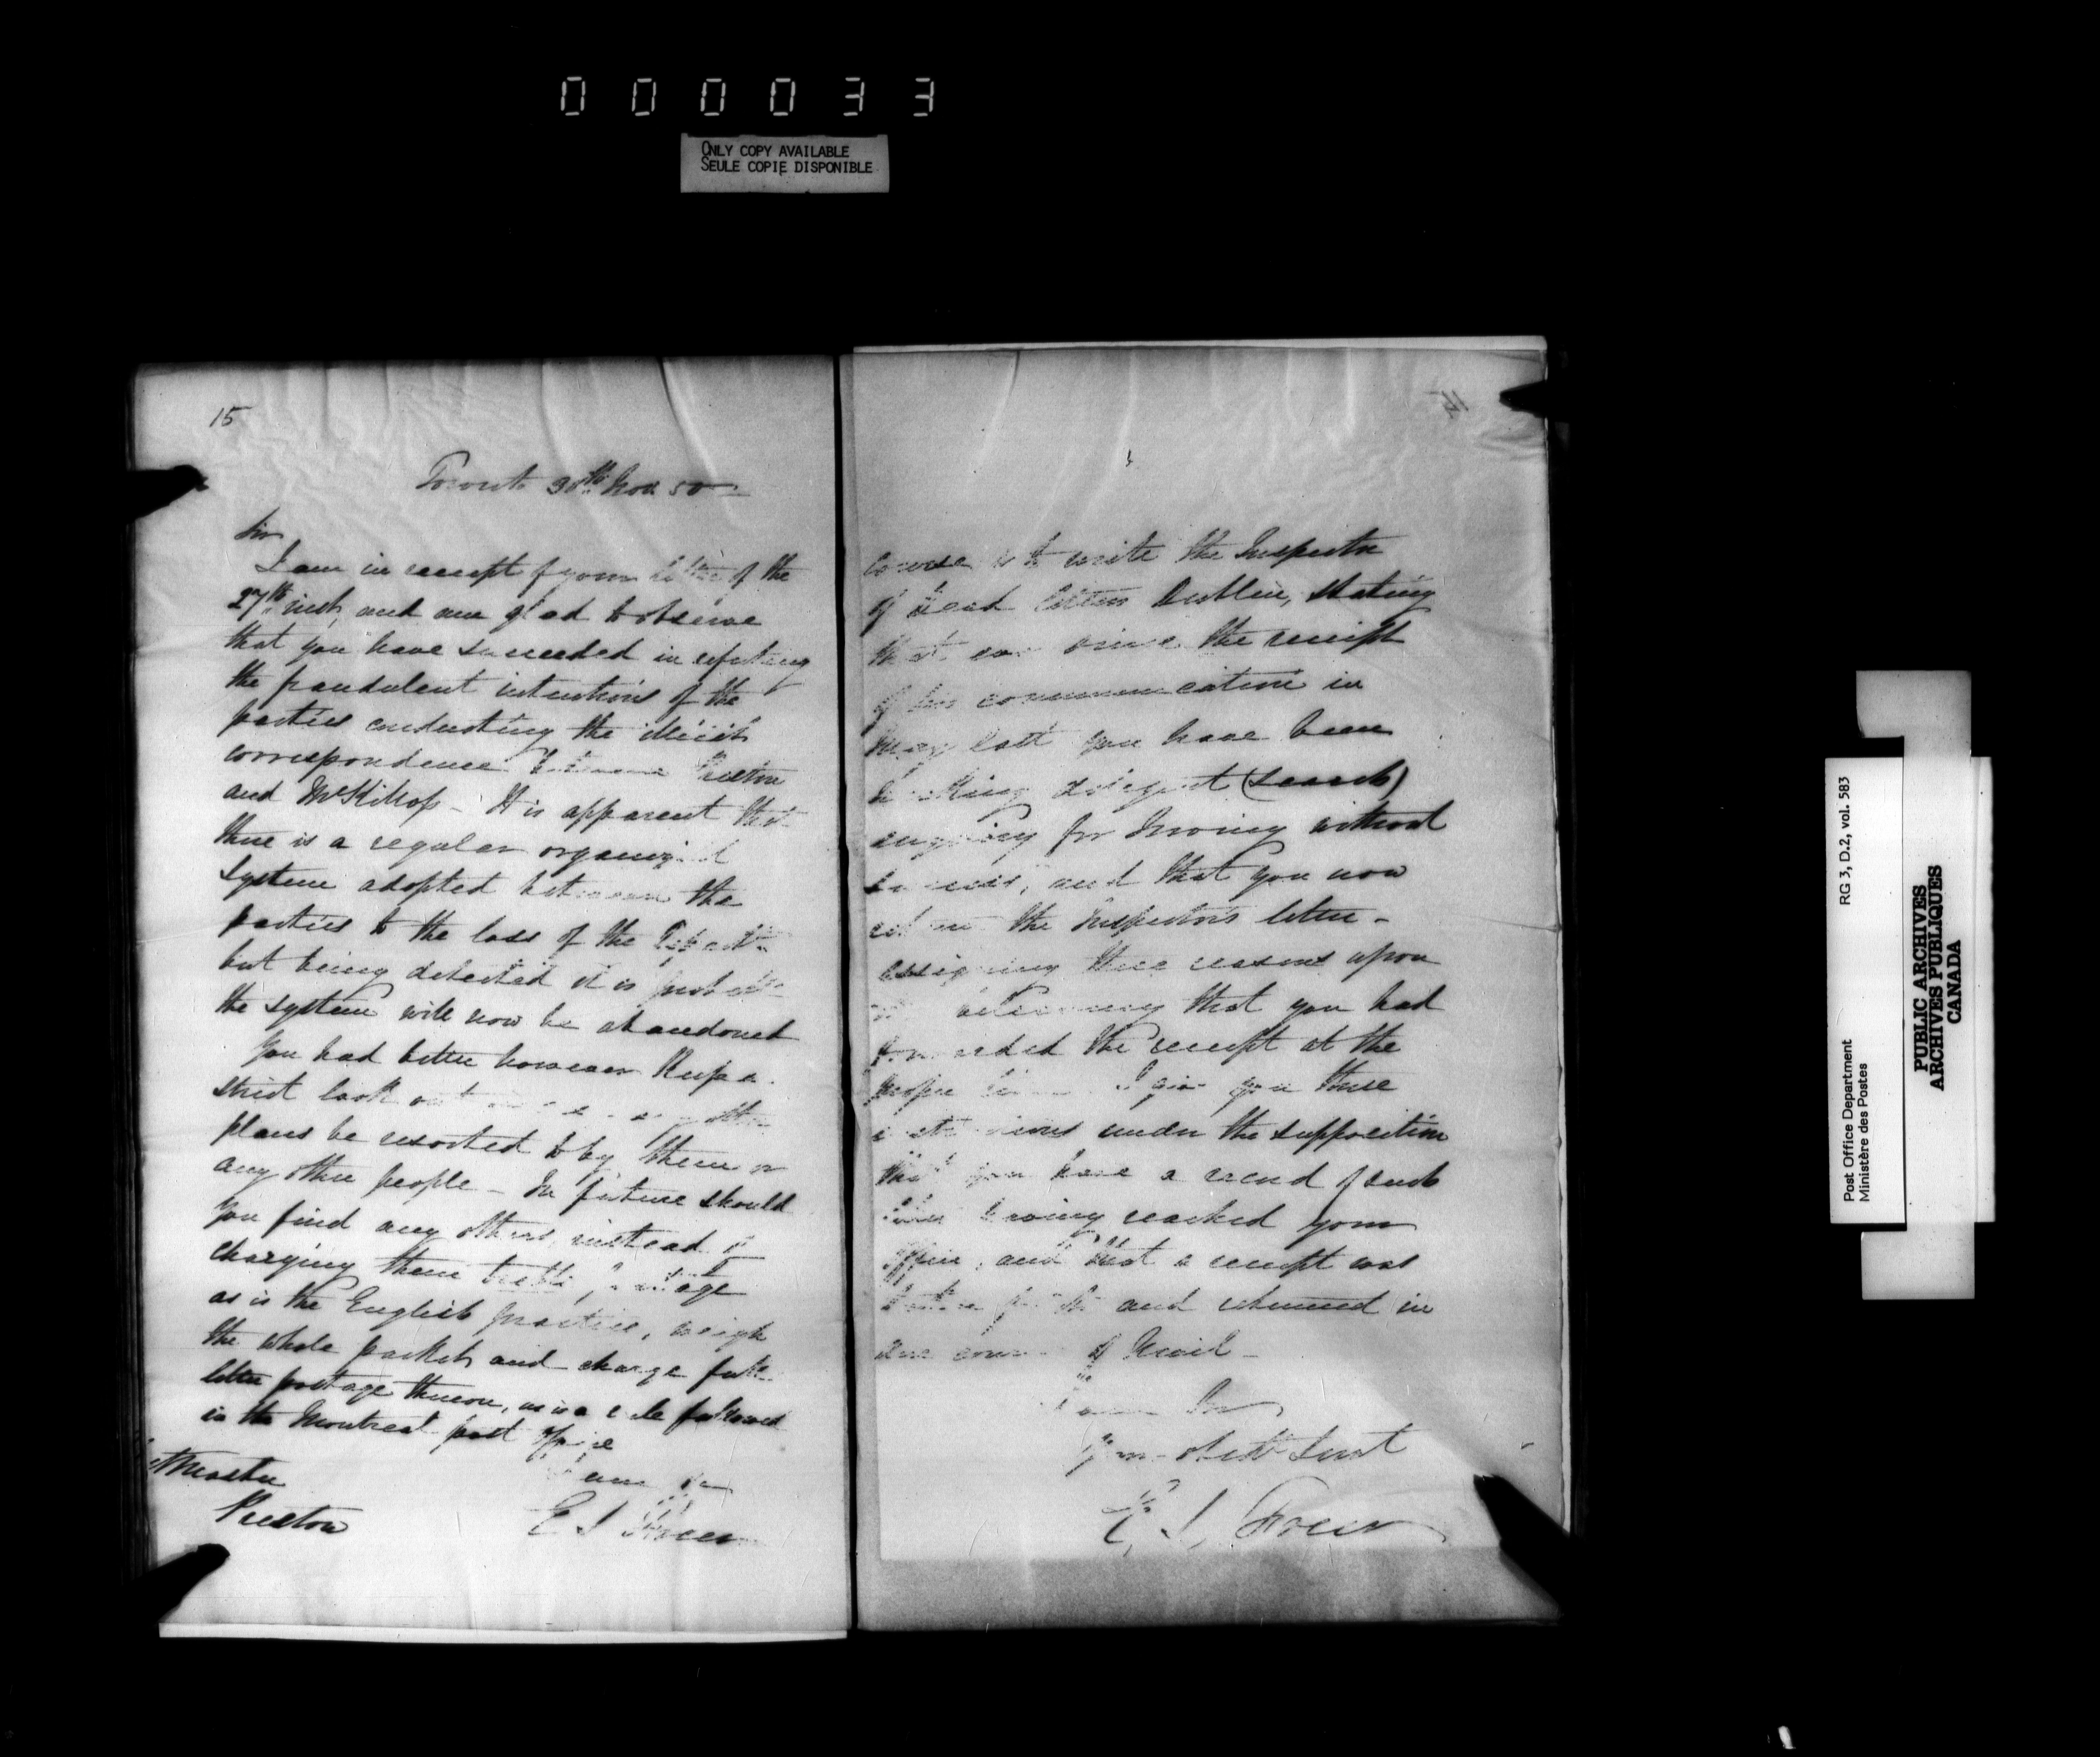 000033
ONLY COPY AVAILABLE
SEULE COPIE DISPONIBLE
15
Toronto 30th Nov 50
Sir
I am in receipt of your letter of the
27th inst, and am glad to observe
that you have succeeded in refuting
the fraudulent intentions of the
parties conducting the illicit
correspondence between Preston
and McKillop - It is apparent that
there is a regular organized
system adopted between the
parties to the loss of the Departt
but being detected it is probable
the system will now be abandoned
You had better however keep a
strict look out other
plans be resorted to by them or
any other people - In future should
you find any others, instead of
charging them treble postage
as is the English practice, weigh
the whole packet and charge full
letter postage thereon, as is a rule followed
in the Montreal post office
I am Sir
E S Freer
Preston
14
course is to write the Inspector
of Dead Letters Dublin, stating
that ever since the receipt
of his communication in
May last you have been
making diligent (search)
enquiry for Irving without
success, and that you now
return the Inspectors letter -
assigning these reasons upon
that you had
forwarded the receipt at the
proper time I give you these
instructions under the supposition
that you have a record of such
letter having reached your
office, and that a receipt was
and returned in
due course of Mail -
I am Sir
Your obedt Servt
E. S. Freer
RG 3, D.2, vol. 583
Post Office Department
Ministère des Postes
PUBLIC ARCHIVES
ARCHIVES PUBLIQUES
CANADA